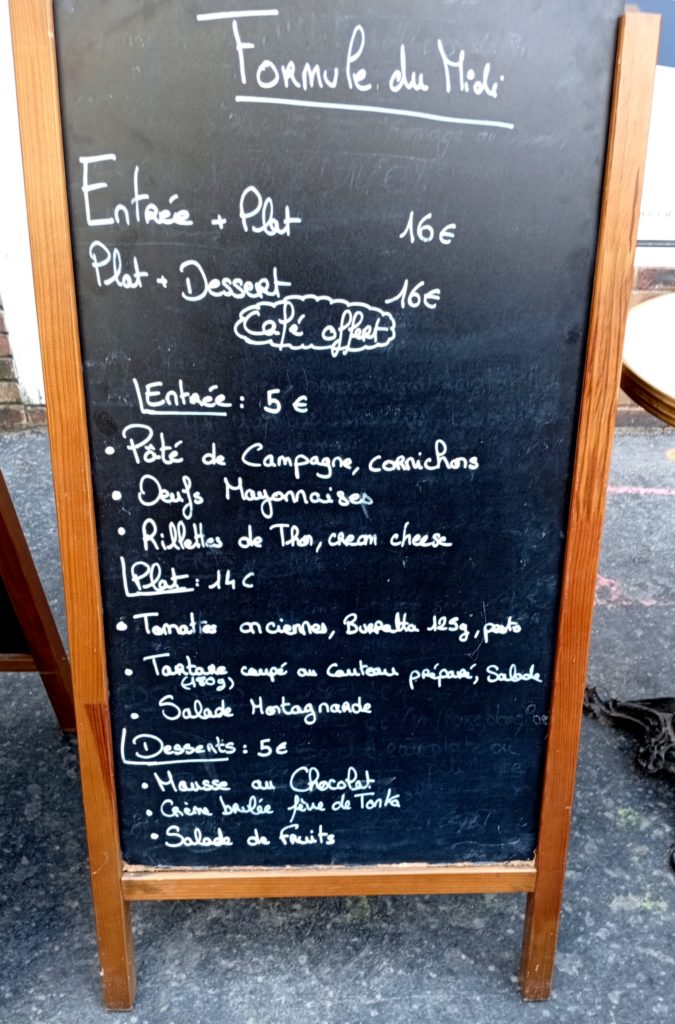 Formule du Midi
Entrée + Plat 16€
Plat + Dessert 16€
Café offert
Entrée : 5 €
• Pâté de Campagne, cornichons
• Oeufs Mayonnaises
• Rillettes de Thon, cream cheese
Plat : 14€
• Tomates anciennes, Burratta 125g, pesto
• Tartare coupé au Couteau préparé, Salade
(180g)
• Salade Montagnarde
Desserts : 5€
• Mousse au Chocolat
• Crème brulée fève de Tonka
• Salade de Fruits